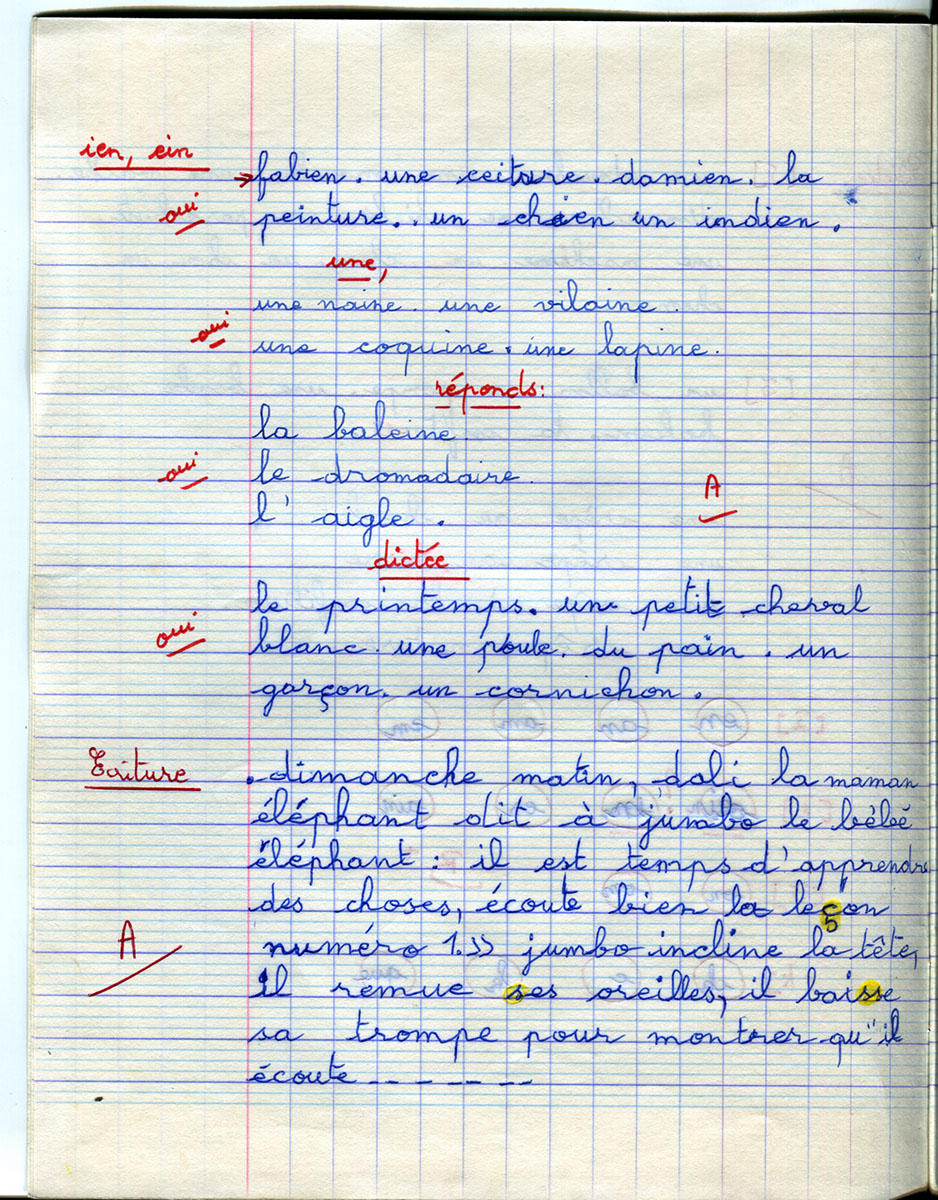 ien, ein
fabien. une ceiture. damien. la
oui
peinture.. un chien un indien.
une,
une naine. une vilaine.
oui
une coquine. une lapine.
réponds:
la baleine.
oui
le dromadaire.
A
l'aigle.
dictée
le printemps. un petit cheval
oui
blanc. une poule. du pain. un
garçon. un cornichon.
Ecriture
.dimanche matin, doli la maman
éléphant dit à jumbo le bébé
éléphant: il est temps d'apprendre
des choses, écoute bien la leçon
A
numéro 1.>> jumbo incline la tête,
il remue ses oreilles, il baisse
sa trompe pour montrer qu'il
écoute _ _ _ _ _ _